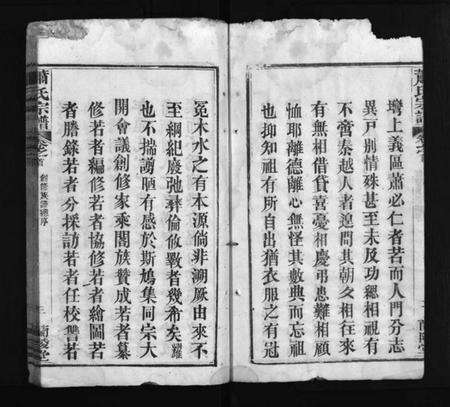 蕭氏宗譜
卷之首
壪上義區蕭必仁者若而人門分志
異戸別情殊甚至未及功緦相視有
不啻秦越人者遑問其朝夕相往來
有無相借貸喜憂相慶弔患難相顧
恤耶離德離心無怪其數典而忘祖
也抑知祖有所自出猶衣服之有冠
冕木水之有本源倘非溯厥由來不
至綱紀廢弛彛倫攸斁者幾希矣耀
也不揣謭陋有感於斯鳩集同宗大
開會議創修家乘闔族贊成若者纂
修若者編修若者協修若者繪圖若
者謄錄若者分採訪若者任校讐若
蕭氏宗譜
卷之首
創修族譜總序
三
南陵堂